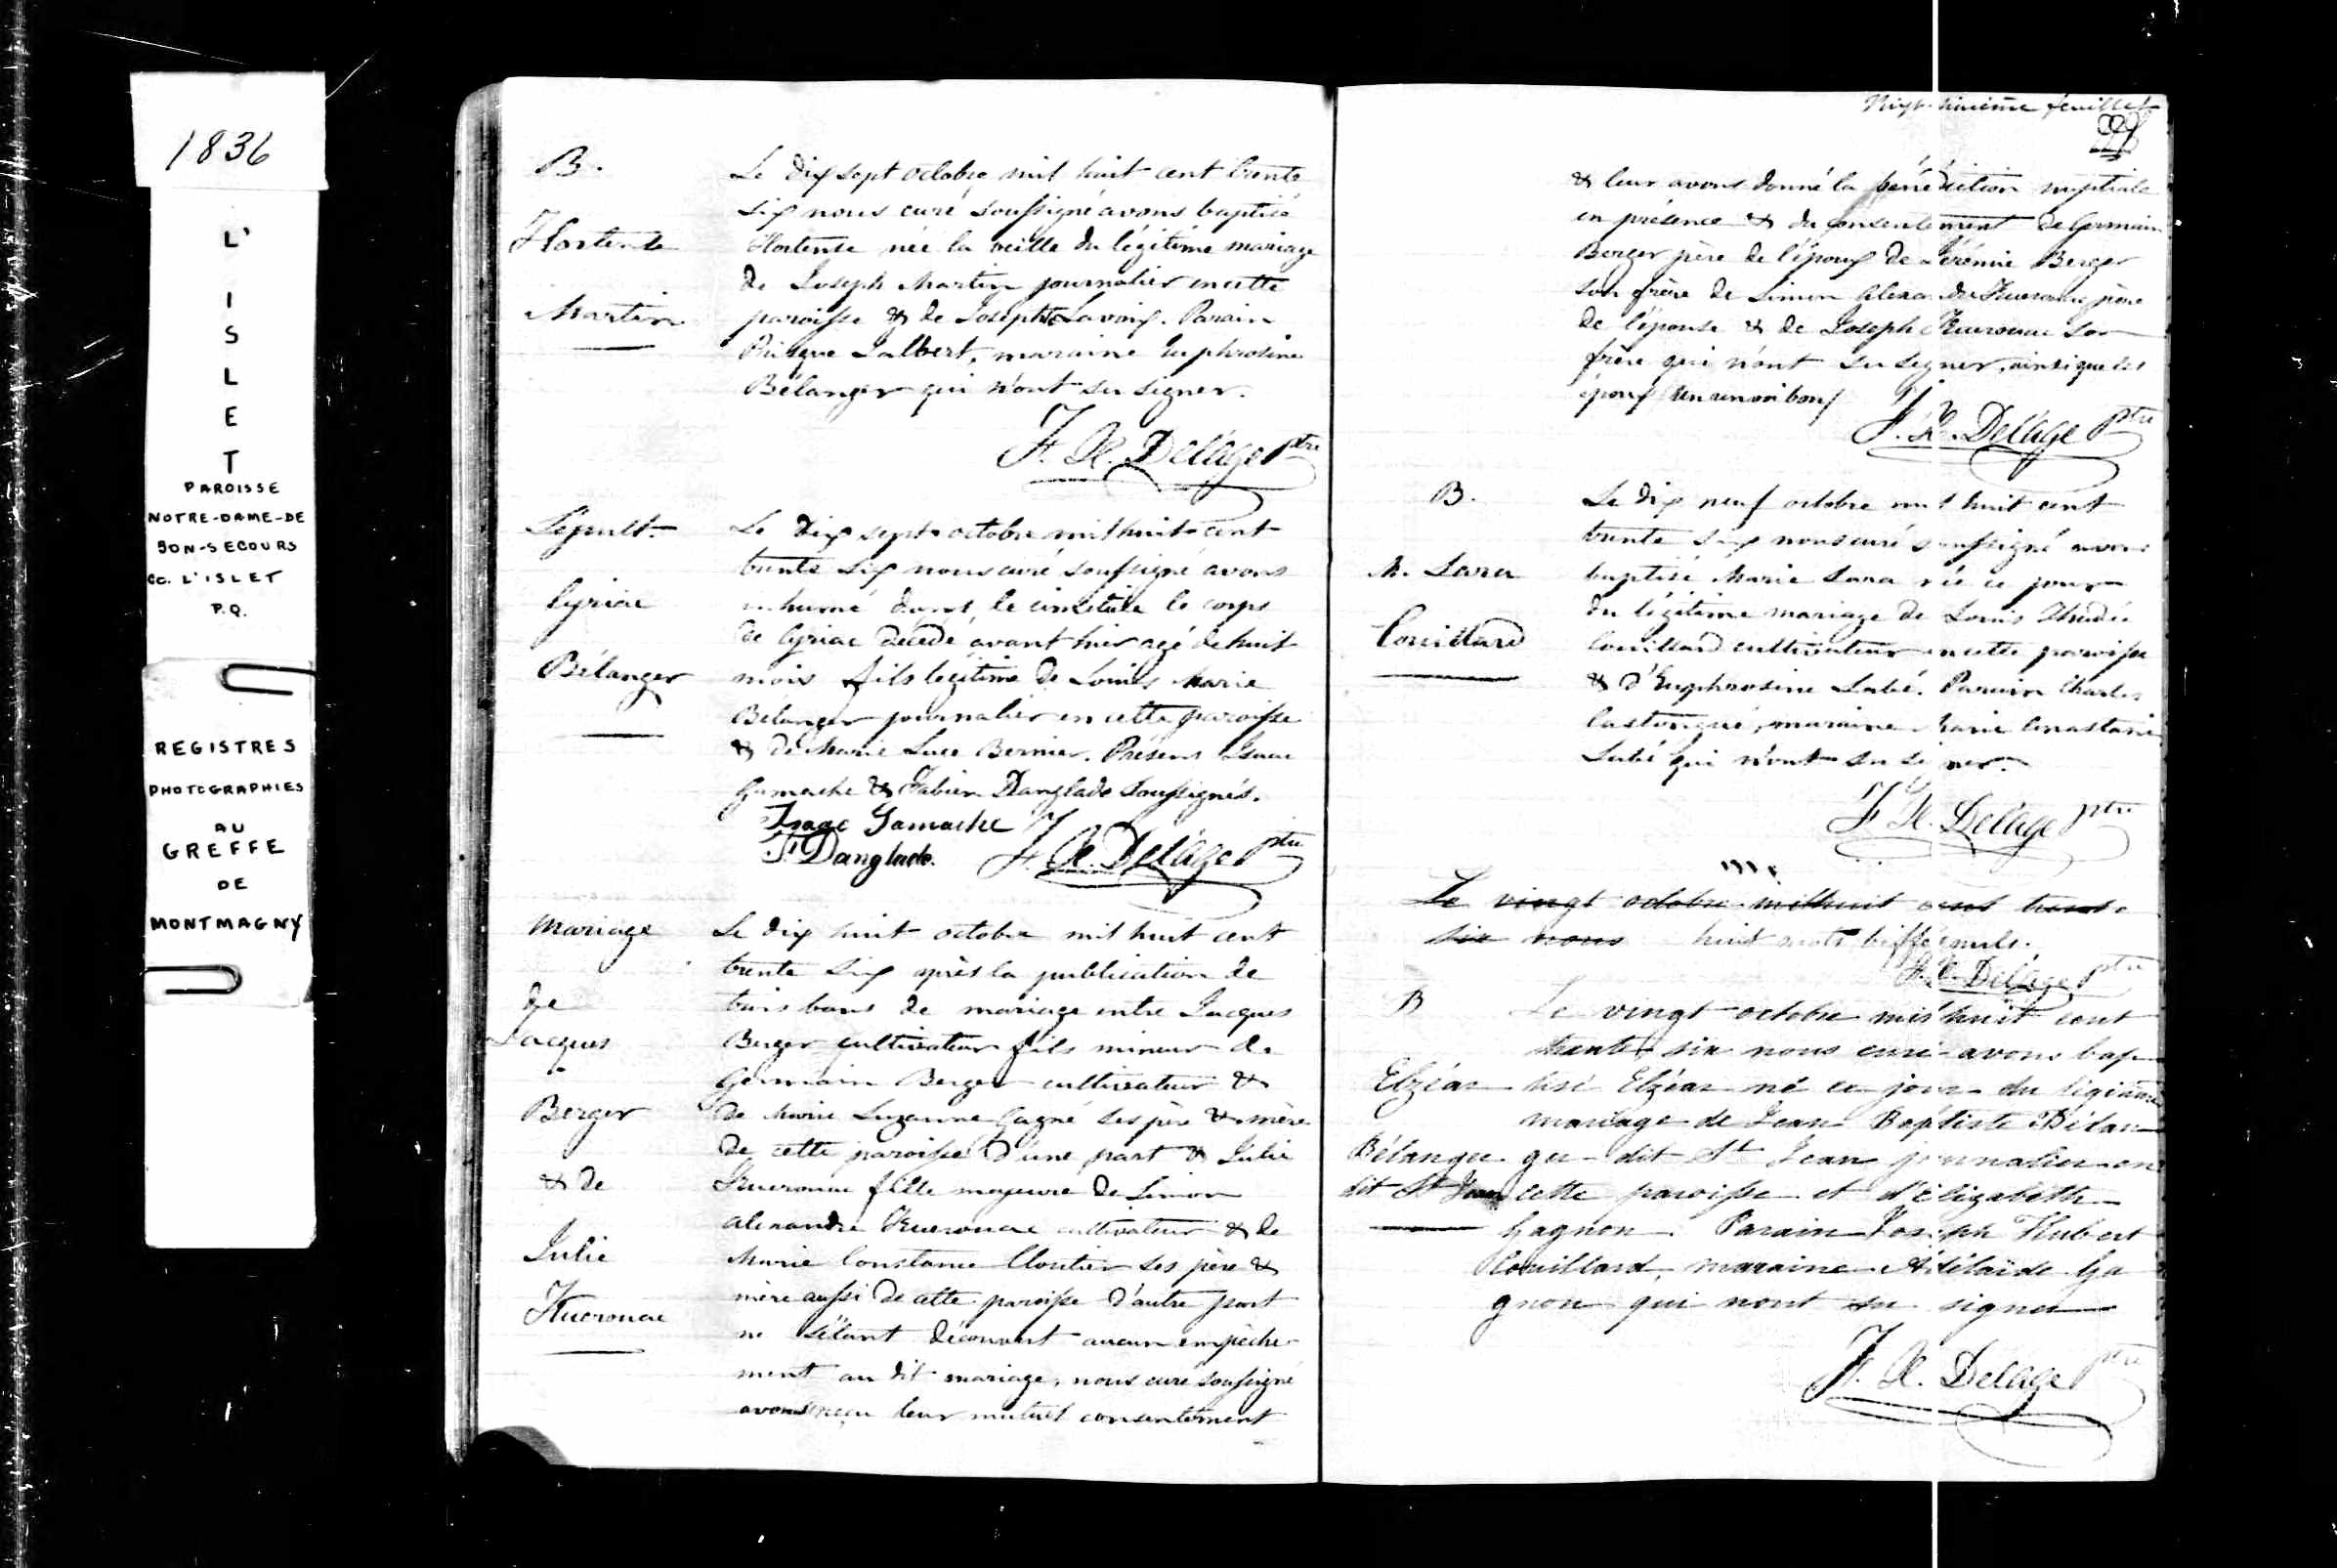 1836
L'
I
S
L
E
T
PAROISSE
NOTRE-DAME-DE
BON-SECOURS
Co. L'ISLET
P.Q.
REGISTRES
PHOTOGRAPHIES
AU
GREFFE
DE
MONTMAGNY
B.
Hortense
Martin
Le dix sept octobre mil huit cent trente
six nous curé soussigné avons baptisé
Hortense née la veille du légitime mariage
de Joseph Martin journalier en cette
paroisse & de Josephte Lavoix. Parain
Prisque Jalbert, maraine Euphrosine
Bélanger qui n'ont su signer.
F. X. Delâge Ptre
Sépult.
Cyriac
Bélanger
Le dix sept octobre mil huit cent
trente six nous curé soussigné avons
inhumé dans le cimetière le corps
de Cyriac décédé avant hier agé de huit
mois fils légitime de Louis Marie
Bélanger journalier en cette paroisse
& de Marie Luce Bernier. Présens Isaac
Gamache & Fabien Danglade soussignés.
Isaac Gamache
F. Danglade. F. X. Delâge Ptre
Mariage
de
Jacques
Berger
& de
Julie
Kuerouac
Le dix huit octobre mil huit cent
trente six après la publication de
trois bans de mariage entre Jacques
Berger cultivateur fils mineur de
Germain Berger cultivateur &
de Marie Suzanne Gagné ses père & mère
de cette paroisse d'une part & Julie
Kuerouac fille majeure de Simon
Alexandre Kuerouac cultivateur & de
Marie Constance Cloutier ses père &
mère aussi de cette paroisse d'autre part
ne s'étant découvert aucun empêche
ment au dit mariage, nous curé soussigné
avons reçu leur mutuel consentement
feuillet
& leur avons donné la bénédiction nuptiale
en présence & du consentement de Germain
Berger père de l'époux de Jérémie Berger
son frère de Simon Alexandre Kuerouac père
de l'épouse & de Joseph Kuerouac son
frère qui n'ont su signer, ainsi que les
époux
F. X. Delâge Ptre
B.
M. Sara
Couillard
Le dix neuf octobre mil huit cent
trente six nous curé soussigné avons
baptisé Marie Sara née ce jour
du légitime mariage de Louis Thadée
Couillard cultivateur en cette paroisse
& d'Euphrosine Labé. Parain Charles
Castonguè, maraine Marie Anastasie
Labé qui n'ont su signer.
F. X. Delâge Ptre
Le vingt octobre mil huit cent trente
six nous huit mots biffés nuls.
F. X. Delâge Ptre
B
Elzéar
Bélanger
dit St Jean
Le vingt octobre mil huit cent
trente six nous curé avons bap
tisé Elzéar né ce jour du légitime
mariage de Jean Baptiste Bélan
ger dit St Jean journalier en
cette paroisse et d'Elizabeth
Gagnon. Parain Joseph Hubert
Couillard, maraine Adélaïde Ga
gnon qui n'ont su signer
F. X. Delage Ptre